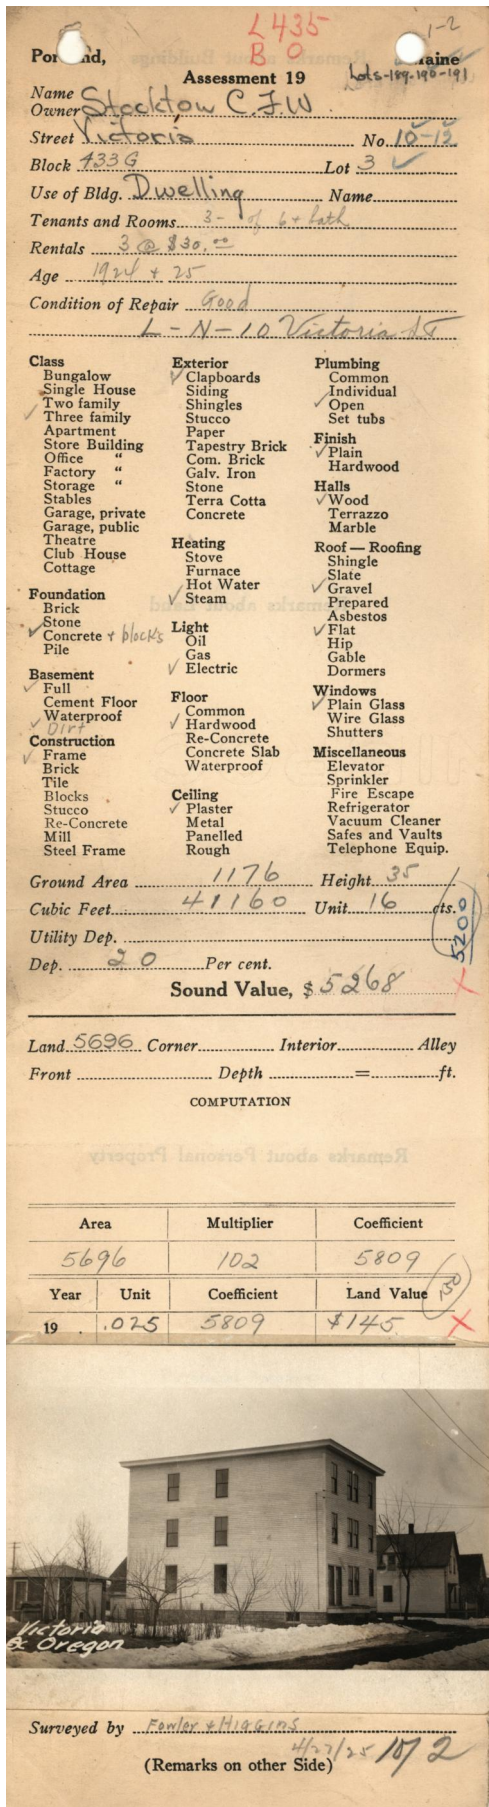 L435
B O
1-2
Portland, Maine
Assessment 19
Lots-189-190-191
Name
Owner Stockton C.F.W
Street Victoria No. 10-12
Block 433G Lot 3 ✓
Use of Bldg. Dwelling Name
Tenants and Rooms 3- of 6 + bath
Rentals 3 @ $30.00
Age 1924 + 25
Condition of Repair Good
L-N-10 Victoria ST
Class
Bungalow
Single House
Two family
✓ Three family
Apartment
Store Building
Office "
Factory "
Storage "
Stables
Garage, private
Garage, public
Theatre
Club House
Cottage
Foundation
Brick
Stone
✓ Concrete + blocks
Pile
Basement
✓ Full
Cement Floor
Waterproof
✓ Dirt
Construction
✓ Frame
Brick
Tile
Blocks
Stucco
Re-Concrete
Mill
Steel Frame
Exterior
✓ Clapboards
Siding
Shingles
Stucco
Paper
Tapestry Brick
Com. Brick
Galv. Iron
Stone
Terra Cotta
Concrete
Heating
Stove
Furnace
Hot Water
✓ Steam
Light
Oil
Gas
✓ Electric
Floor
Common
✓ Hardwood
Re-Concrete
Concrete Slab
Waterproof
Ceiling
✓ Plaster
Metal
Panelled
Rough
Plumbing
Common
Individual
✓ Open
Set tubs
Finish
✓ Plain
Hardwood
Halls
✓ Wood
Terrazzo
Marble
Roof — Roofing
Shingle
Slate
✓ Gravel
Prepared
Asbestos
✓ Flat
Hip
Gable
Dormers
Windows
✓ Plain Glass
Wire Glass
Shutters
Miscellaneous
Elevator
Sprinkler
Fire Escape
Refrigerator
Vacuum Cleaner
Safes and Vaults
Telephone Equip.
Ground Area 1176 Height 35
Cubic Feet 41160 Unit 16 cts.
5200
Utility Dep.
Dep. 20 Per cent.
Sound Value, $ 5268
Land 5696 Corner Interior Alley
Front Depth = ft.
COMPUTATION
Area Multiplier Coefficient
5696 102 5809
Year Unit Coefficient Land Value
19 .025 5809 $145
Victoria
& Oregon
Surveyed by Fowler & Higgins
4/27/25
(Remarks on other Side)